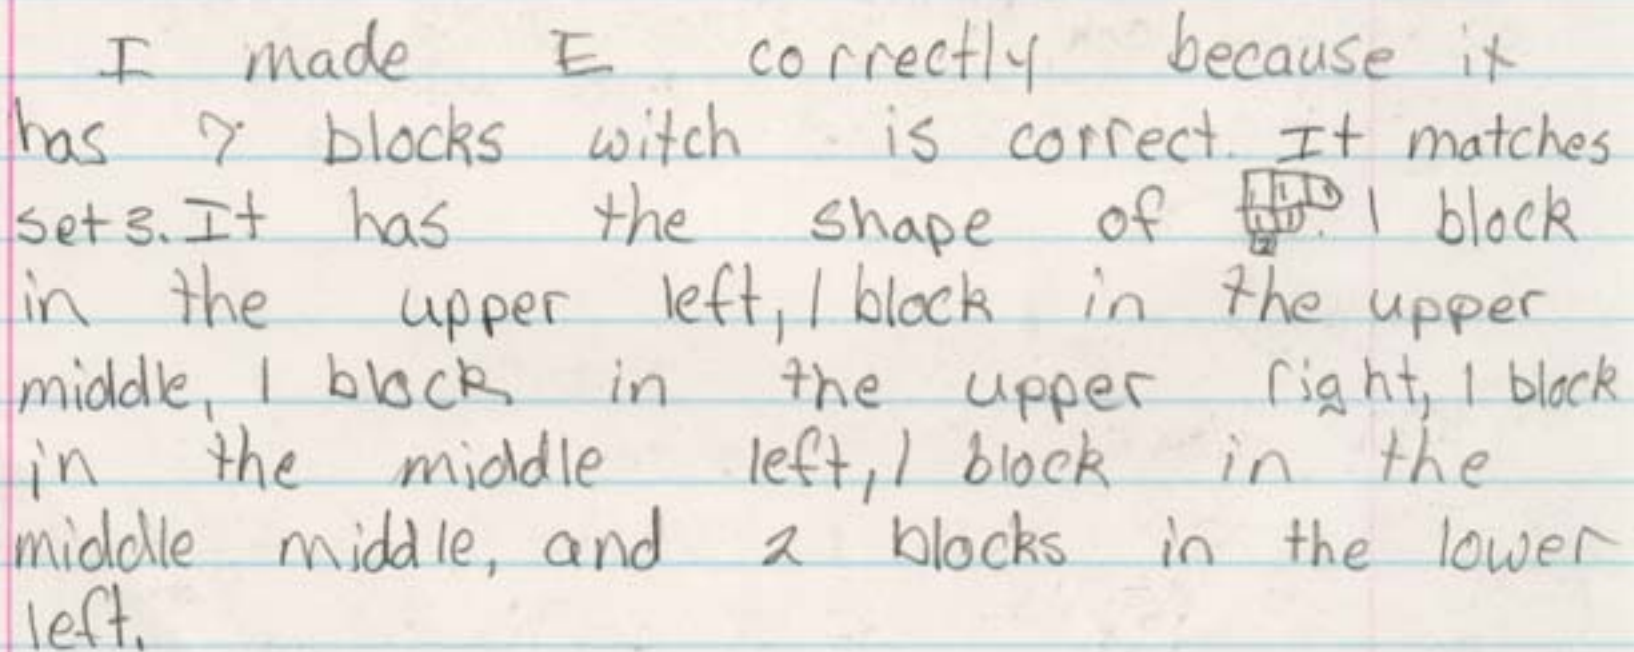 I made E correctly because it
has 7 blocks witch is correct. It matches
set 3. It has the shape of 1 1 1 1 1 2. 1 block
in the upper left, 1 block in the upper
middle, 1 block in the upper right, 1 block
in the middle left, 1 block in the
middle middle, and 2 blocks in the lower
left.